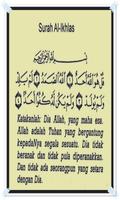 Surah Al-Ikhlas
بِسْمِ اللَّهِ الرَّحْمَٰنِ الرَّحِيمِ
قُلْ هُوَ اللَّهُ أَحَدٌ ۝ اللَّهُ الصَّمَدُ ۝ لَمْ يَلِدْ
وَلَمْ يُولَدْ ۝ وَلَمْ يَكُنْ لَهُ كُفُوًا أَحَدٌ ۝
Katakanlah: Dia Allah, yang maha esa.
Allah adalah Tuhan yang bergantung
kepadaNya segala sesuatu. Dia tidak
beranak dan tidak pula diperanakkan.
Dan tidak ada seorangpun yang setara
dengan Dia.